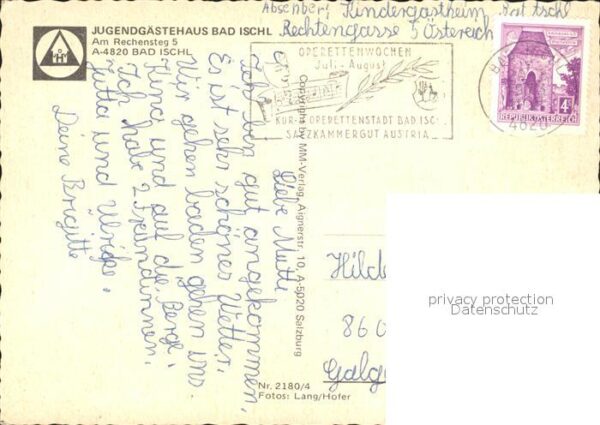 JUGENDGÄSTEHAUS BAD ISCHL
Am Rechensteg 5
A-4820 BAD ISCHL
Absenber: Kindergästheim Bat Ischl
Rechtengasse 5 Östereich
OPERETTENWOCHEN
Juli - August
KUR- OPERETTENSTADT BAD ISC
SALZKAMMERGUT AUSTRIA
4820
4
REPUBLIK ÖSTERREICH
Liebe Mutti
Ich bin gut angekommen,
Es ist sehr schönes Wetter,
Wir gehen baden gehen uns
und auf die Berge.
Ich habe 2 Freundinnen,
Jutta und Ulrike.
Deine Brigitte
Copyright by MM-Verlag, Aignerstr. 10, A-5020 Salzburg
Hilde
860
Galg
privacy protection
Datenschutz
Nr. 2180/4
Fotos: Lang/Hofer